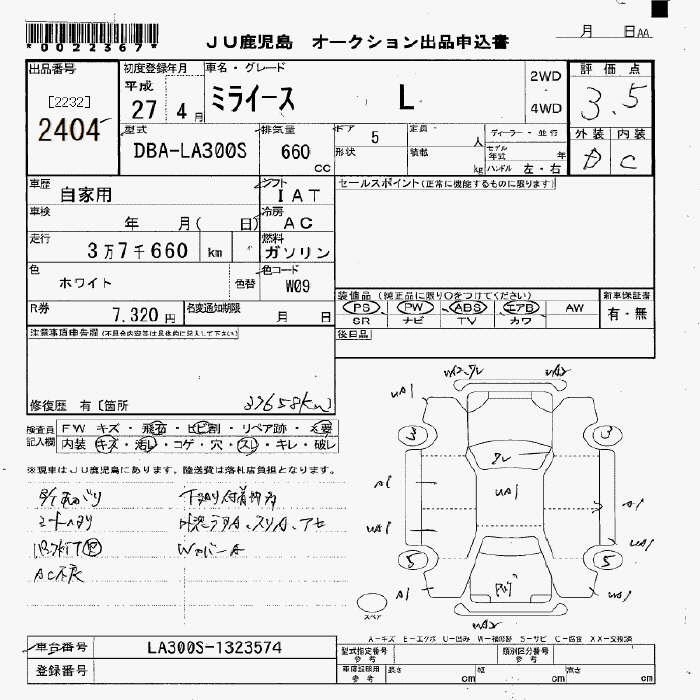 *0022367*
JU鹿児島 オークション出品申込書
月 日AA
出品番号
[2232]
2404
初度登録年月
平成
27 4月
車名・グレード
ミライース L
2WD
4WD
評価点
3.5
外装 内装
D C
型式
DBA-LA300S
排気量
660
cc
ドア 5
形状
定員 人
積載 kg
ディーラー・並行
モデル年式 年
ハンドル 左・右
車歴
自家用
シフト
IAT
セールスポイント(正常に機能するものに限ります)
車検
年 月( 日)
冷房
AC
走行
3万7千660 km
燃料
ガソリン
色
ホワイト
色替
色コード
W09
装備品(純正品に限り○をつけてください)
PS PW ABS エアB AW
SR ナビ TV カワ
新車保証書
有・無
R券
7.320円
名変通知期限
月 日
後日品
注意事項申告欄(不具合内容等は具体的に記入して下さい)
修復歴 有〔箇所
37658km〕
検査員記入欄
FW キズ・飛石・ヒビ割・リペア跡・×要
内装 キズ・汚レ・コゲ・穴・スレ・キレ・破レ
※現車はJU鹿児島にあります。陸送費は落札店負担となります。
AC不良
UA2
UA1
3 3
UA1
A1
A1
UA1
UA1
5 5
A1
UA1
UA2
スペア
A-キズ E-エクボ U-凹み W-補修跡 S-サビ C-腐食 XX-交換済
車台番号
LA300S-1323574
登録番号
型式指定番号
参考
類別区分番号
参考
車庫証明用
参考
長さ cm
幅 cm
高さ cm